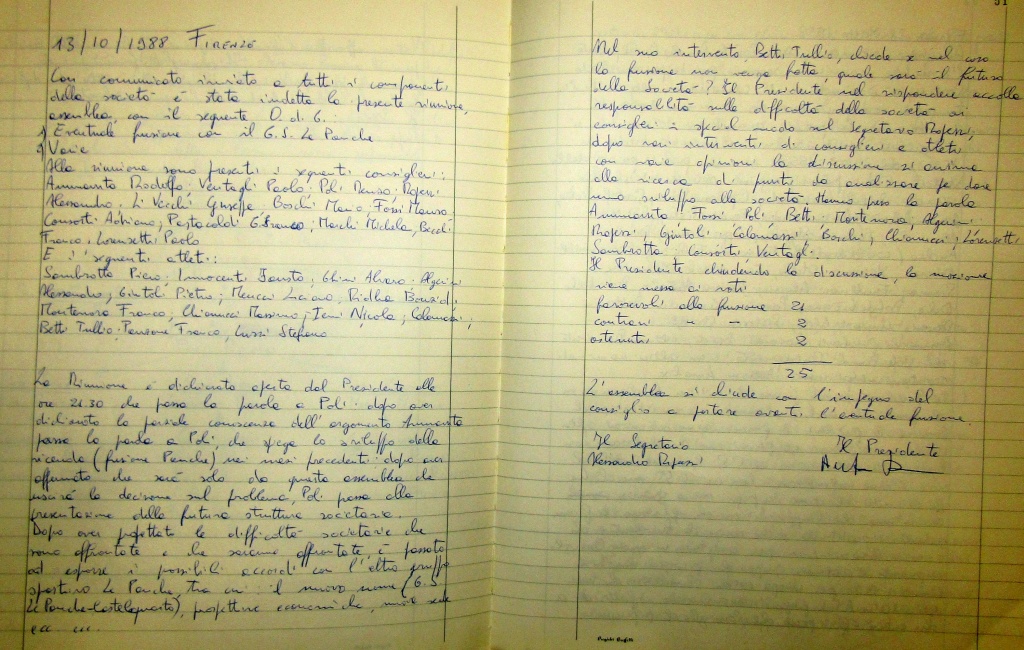 13/10/1988 FIRENZE
Con comunicato inviato a tutti i componenti
della società è stata indetta la presente riunione,
assemblea, con il seguente O. d. G.:
1) Eventuale fusione con il G.S. Le Panche
2) Varie
Alla riunione sono presenti i seguenti consiglieri:
Ammannito Rodolfo, Ventagli Paolo, Poli Renzo,
Alessandro, Li Vecchi Giuseppe, Boschi Mario, Fossi Mauro,
Consorti Adriano, Pastacaldi G.Franco, Marchi Michela, Becchi
Franco, Lorenzetti Paolo
E i seguenti atleti:
Sambrotta Piero, Innocenti Fausto, Ghini Alvaro, Algerini
Alessandro, Giuntoli Pietro, Meucci Luciano, Ridha
Montenora Franco, Chiarucci Massimo, Nicola, Colomassi,
Betti Tullio, Franco, Stefano
La Riunione è dichiarata aperta dal Presidente alle
ore 21.30 che passa la parola a Poli. dopo aver
dichiarato la parziale conoscenza dell'argomento Ammannito
passa la parola a Poli, che spiega lo sviluppo della
vicenda (fusione Panche) nei mesi precedenti. dopo aver
affermato che sarà solo da questa assemblea che
uscirà la decisione sul problema, Poli passa alla
presentazione della futura struttura societaria.
Dopo aver prospettato le difficoltà societarie che
sono affrontate e che saranno affrontate, è passato
ad esporre i possibili accordi con l'altro gruppo
sportivo Le Panche, tra cui: il nuovo nome (G.S.
Le Panche-Castelquarto), prospettive economiche, nuova sede
ecc. ecc.
51
Nel suo intervento, Betti Tullio, chiede se nel caso
la fusione non venga fatta, quale sarà il futuro
della Società? Il Presidente nel rispondere accolla
responsabilità sulle difficoltà della società ai
consiglieri in special modo sul Segretario
dopo vari interventi di consiglieri e atleti
con varie opinioni la discussione si
alla ricerca di punti da analizzare per dare
uno sviluppo alla società. Hanno preso la parola
Ammannito, Fossi, Poli, Betti, Montenora, Algerini
Giuntoli, Colomassi, Boschi, Chiarucci, Lorenzetti
Sambrotta, Consorti, Ventagli.
Il Presidente chiudendo la discussione, la mozione
viene messa ai voti
favorevoli alla fusione 21
contrari " - 2
astenuti 2
25
L'assemblea si chiude con l'impegno del
consiglio a portare avanti l'eventuale fusione.
Il Segretario Il Presidente
Alessandro